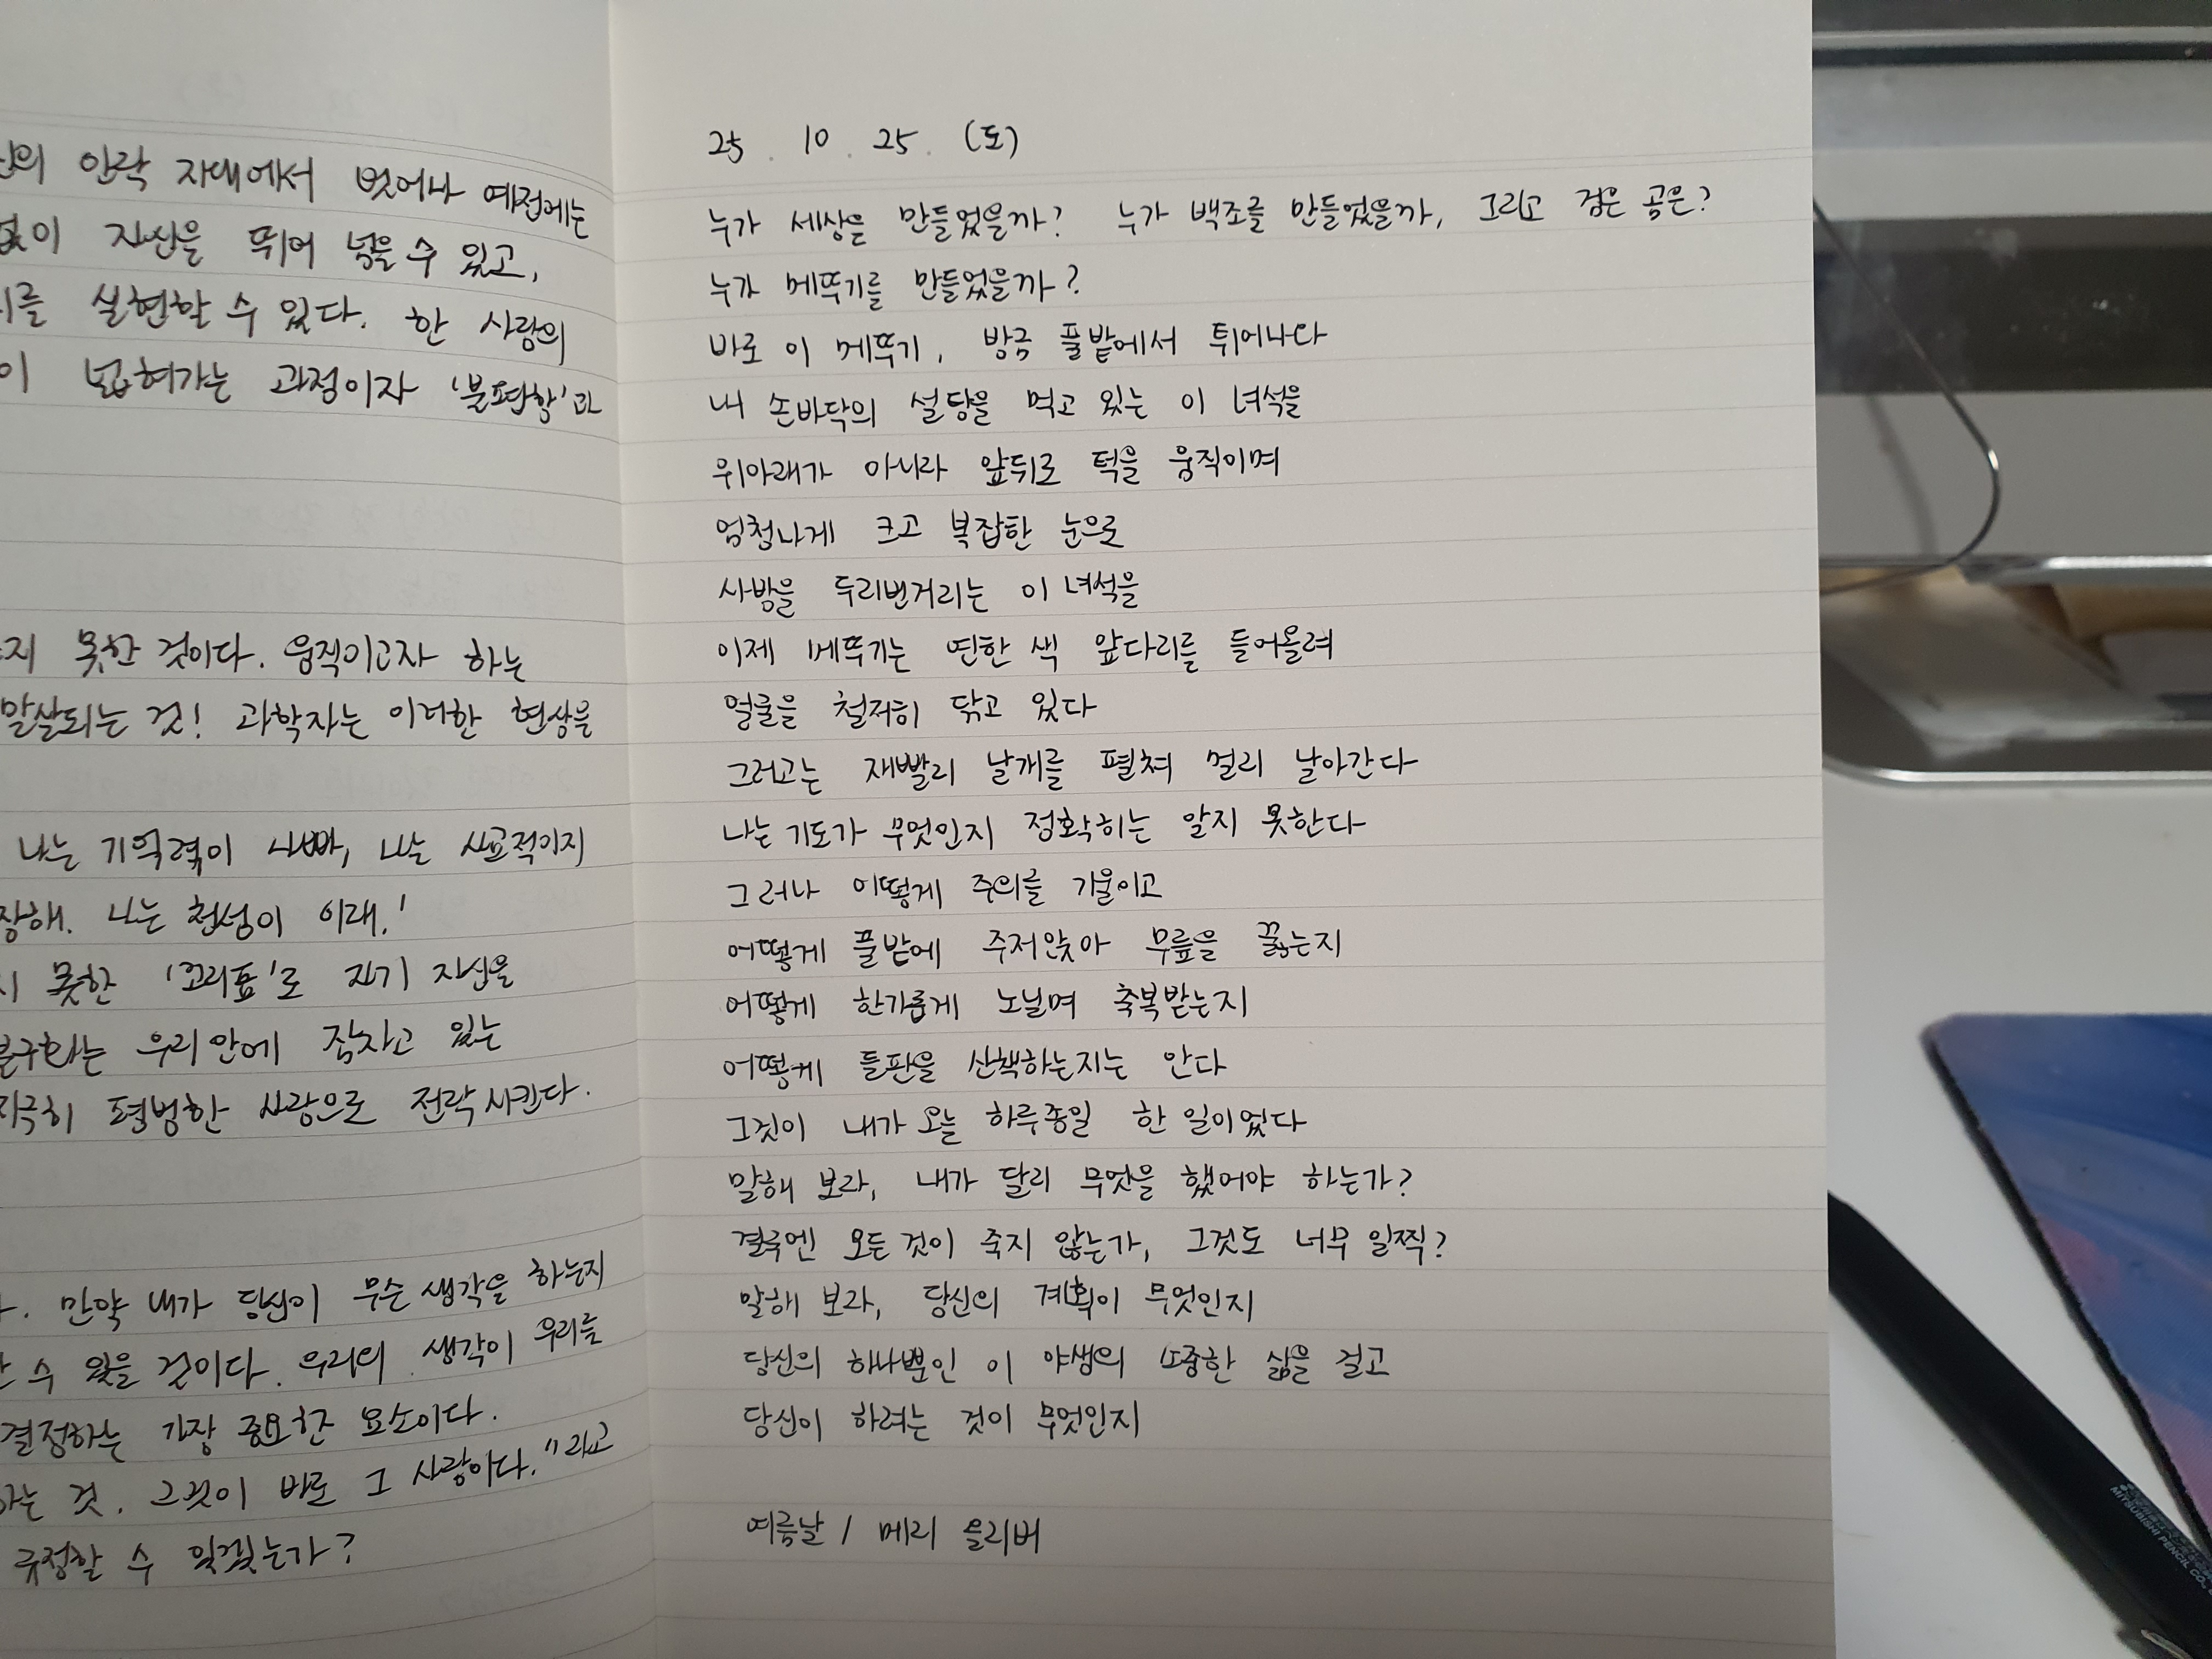 안락 지대에서 벗어나 예전에는
없이 자신을 뛰어 넘을 수 있고,
를 실현할 수 있다. 한 사람의
이 넓혀가는 과정이자 '불편함'과
지 못한 것이다. 움직이고자 하는
말살되는 것! 과학자는 이러한 현상을
나는 기억력이 나빠, 나는 사교적이지
장해. 나는 천성이 이래.'
못한 '꼬리표'로 자기 자신을
불구하는 우리 안에 잠자고 있는
지극히 평범한 사람으로 전락시킨다.
. 만약 내가 당신이 무슨 생각을 하는지
수 있을 것이다. 우리의 생각이 우리를
결정하는 가장 중요한 요소이다.
하는 것. 그것이 바로 그 사람이다."라고
규정할 수 있겠는가?
25. 10. 25. (토)
누가 세상을 만들었을까? 누가 백조를 만들었을까, 그리고 검은 곰은?
누가 메뚜기를 만들었을까?
바로 이 메뚜기, 방금 풀밭에서 튀어나와
내 손바닥의 설탕을 먹고 있는 이 녀석을
위아래가 아니라 앞뒤로 턱을 움직이며
엄청나게 크고 복잡한 눈으로
사방을 두리번거리는 이 녀석을
이제 메뚜기는 연한 색 앞다리를 들어올려
얼굴을 철저히 닦고 있다
그러고는 재빨리 날개를 펼쳐 멀리 날아간다
나는 기도가 무엇인지 정확히는 알지 못한다
그러나 어떻게 주의를 기울이고
어떻게 풀밭에 주저앉아 무릎을 꿇는지
어떻게 한가롭게 노닐며 축복받는지
어떻게 들판을 산책하는지는 안다
그것이 내가 오늘 하루종일 한 일이었다
말해 보라, 내가 달리 무엇을 했어야 하는가?
결국엔 모든 것이 죽지 않는가, 그것도 너무 일찍?
말해 보라, 당신의 계획이 무엇인지
당신의 하나뿐인 이 야생의 소중한 삶을 걸고
당신이 하려는 것이 무엇인지
여름날 / 메리 올리버
MITSUBISHI PENCIL CO.,